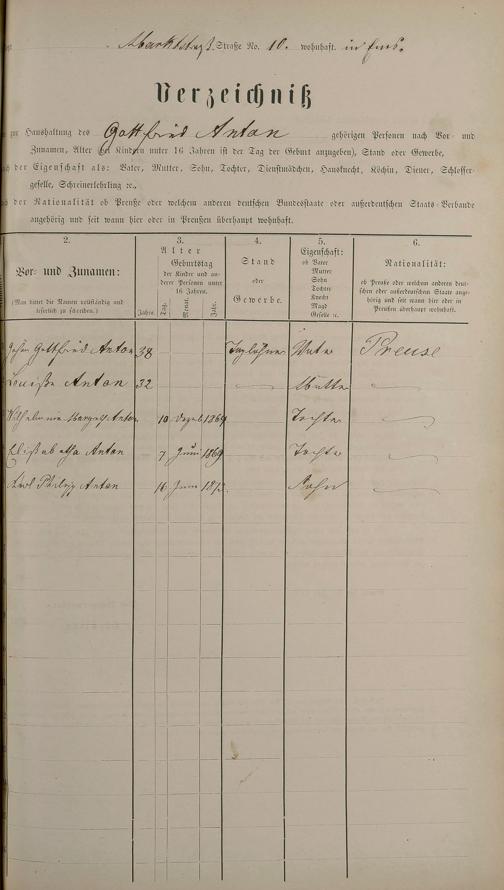 Marktstraß. Straße No. 10. wohnhaft. in Ems.
Verzeichniß
zur Haushaltung des Gottfried Anton gehörigen Personen nach Vor- und
Zunamen, Alter (bei Kindern unter 16 Jahren ist der Tag der Geburt anzugeben), Stand oder Gewerbe,
nach der Eigenschaft als: Vater, Mutter, Sohn, Tochter, Dienstmädchen, Hausknecht, Köchin, Diener, Schlosser-
geselle, Schreinerlehrling ꝛc.,
nach der Nationalität ob Preuße oder welchem anderen deutschen Bundesstaate oder außerdeutschen Staats-Verbande
angehörig und seit wann hier oder in Preußen überhaupt wohnhaft.
2. 3. 4. 5. 6.
Vor- und Zunamen:
(Man bittet die Namen vollständig und
leserlich zu schreiben.)
Alter
Geburtstag
der Kinder und an-
derer Personen unter
16 Jahren.
Jahre. Tag. Monat. Jahr.
Stand
oder
Gewerbe.
Eigenschaft:
ob Vater
Mutter
Sohn
Tochter
Knecht
Magd
Geselle ꝛc.
Nationalität:
ob Preuße oder welchem anderen deut-
schen oder außerdeutschen Staate ange-
hörig und seit wann hier oder in
Preußen überhaupt wohnhaft.
Gottfried Anton 38 Taglöhner Vater Preuse
Louiße Anton 32 Mutter
Wilhelmine Margreth Anton 10 Dezeb Tochter
Elisabetha Anton 7 Juni 1869 Tochter
Karl Philipp Anton 16 Juni Sohn